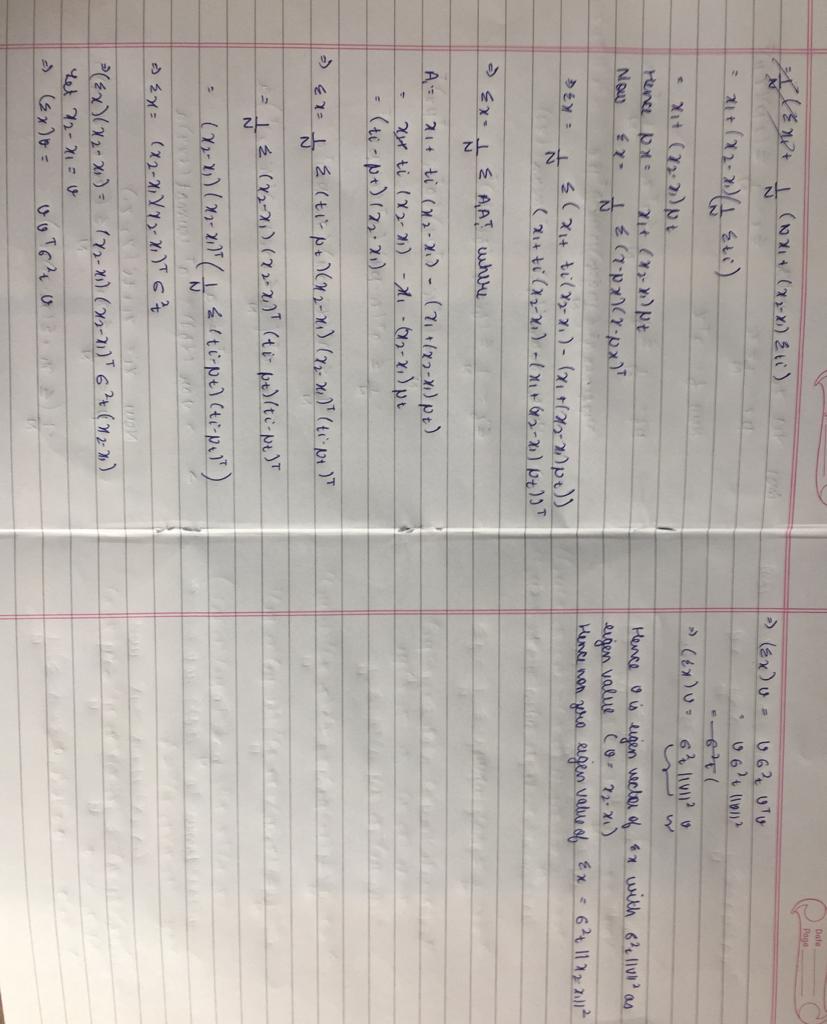 = 1/N (Σx1 + 1/N (Nx1 + (x2-x1) Σti)
= x1 + (x2-x1)(1/N Σti)
= x1 + (x2-x1)μt
Hence μx = x1 + (x2-x1)μt
Now Σx = 1/N Σ(x-μx)(x-μx)ᵀ
⇒ Σx = 1/N Σ(x1 + ti(x2-x1) - (x1+(x2-x1)μt))
(x1 + ti(x2-x1) - (x1+(x2-x1)μt))ᵀ
⇒ Σx = 1/N Σ AiAiᵀ where
Ai = x1 + ti (x2-x1) - (x1+(x2-x1)μt)
= x1+ ti (x2-x1) - x1 - (x2-x1)μt
= (ti - μt)(x2-x1)
⇒ Σx = 1/N Σ (ti-μt)(x2-x1)(x2-x1)ᵀ(ti-μt)ᵀ
= 1/N Σ (x2-x1)(x2-x1)ᵀ(ti-μt)(ti-μt)ᵀ
= (x2-x1)(x2-x1)ᵀ(1/N Σ(ti-μt)(ti-μt)ᵀ)
⇒ Σx = (x2-x1)(x2-x1)ᵀ σ²t
⇒ (Σx)(x2-x1) = (x2-x1)(x2-x1)ᵀ σ²t (x2-x1)
Let x2-x1 = v
⇒ (Σx)v = v vᵀ σ²t v
Date
Page
⇒ (Σx)v = v σ²t vᵀv
= v σ²t ||v||²
= σ²t (
⇒ (Σx)v = σ²t ||v||² v
Hence v is eigen vector of Σx with σ²t ||v||² as
eigen value (v = x2-x1)
Hence non zero eigen value of Σx = σ²t ||x2-x1||²